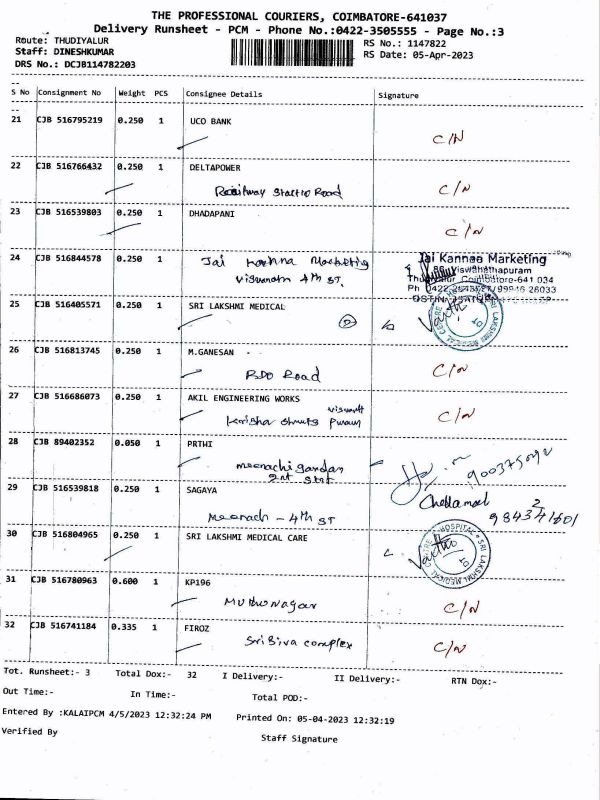 THE PROFESSIONAL COURIERS, COIMBATORE-641037
Delivery Runsheet - PCM - Phone No.:0422-3505555 - Page No.:3
Route: THUDIYALUR
RS No.: 1147822
Staff: DINESHKUMAR
RS Date: 05-Apr-2023
DRS No.: DCJB114782203
S No Consignment No Weight PCS Consignee Details Signature
21 CJB 516795219 0.250 1 UCO BANK
C/N
22 CJB 516766432 0.250 1 DELTAPOWER
Railway Road C/N
23 CJB 516539803 0.250 1 DHADAPANI
C/N
24 CJB 516844578 0.250 1 Jai Marketing Jai Kannaa Marketing
4th ST. Viswanathapuram
Coimbatore-641 034
25 CJB 516405571 0.250 1 SRI LAKSHMI MEDICAL
SRI LAKSHMI MEDICAL CENTRE
26 CJB 516813745 0.250 1 M.GANESAN
RDO Road C/N
27 CJB 516686073 0.250 1 AKIL ENGINEERING WORKS
C/N
28 CJB 89402352 0.050 1 PRTHI
29 CJB 516539818 0.250 1 SAGAYA
4th ST
30 CJB 516804965 0.250 1 SRI LAKSHMI MEDICAL CARE
SRI LAKSHMI MEDICAL CENTRE HOSPITAL
31 CJB 516780963 0.600 1 KP196
C/N
32 CJB 516741184 0.335 1 FIROZ
Sri Siva complex C/N
Tot. Runsheet:- 3 Total Dox:- 32 I Delivery:- II Delivery:- RTN Dox:-
Out Time:- In Time:- Total POD:-
Entered By :KALAIPCM 4/5/2023 12:32:24 PM Printed On: 05-04-2023 12:32:19
Verified By
Staff Signature